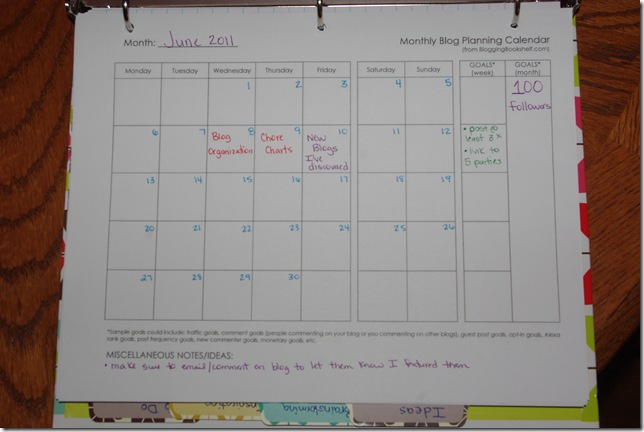 Month: June 2011
Monthly Blog Planning Calendar
(from BloggingBookshelf.com)
Monday Tuesday Wednesday Thursday Friday Saturday Sunday GOALS* (week) GOALS* (month)
1 2 3 4 5
100
Followers
6 7 8 9 10 11 12
Blog
Organization
Chore
Charts
New
Blogs
I've
discovered
• post @
least 3x
• link to
5 parties
13 14 15 16 17 18 19
20 21 22 23 24 25 26
27 28 29 30
*Sample goals could include: traffic goals, comment goals (people commenting on your blog or you commenting on other blogs), guest post goals, opt-in goals, Alexa
rank goals, post frequency goals, new commenter goals, monetary goals, etc.
MISCELLANEOUS NOTES/IDEAS:
• make sure to email/comment on blog to let them know I featured them
Do
Brainstorming
Ideas